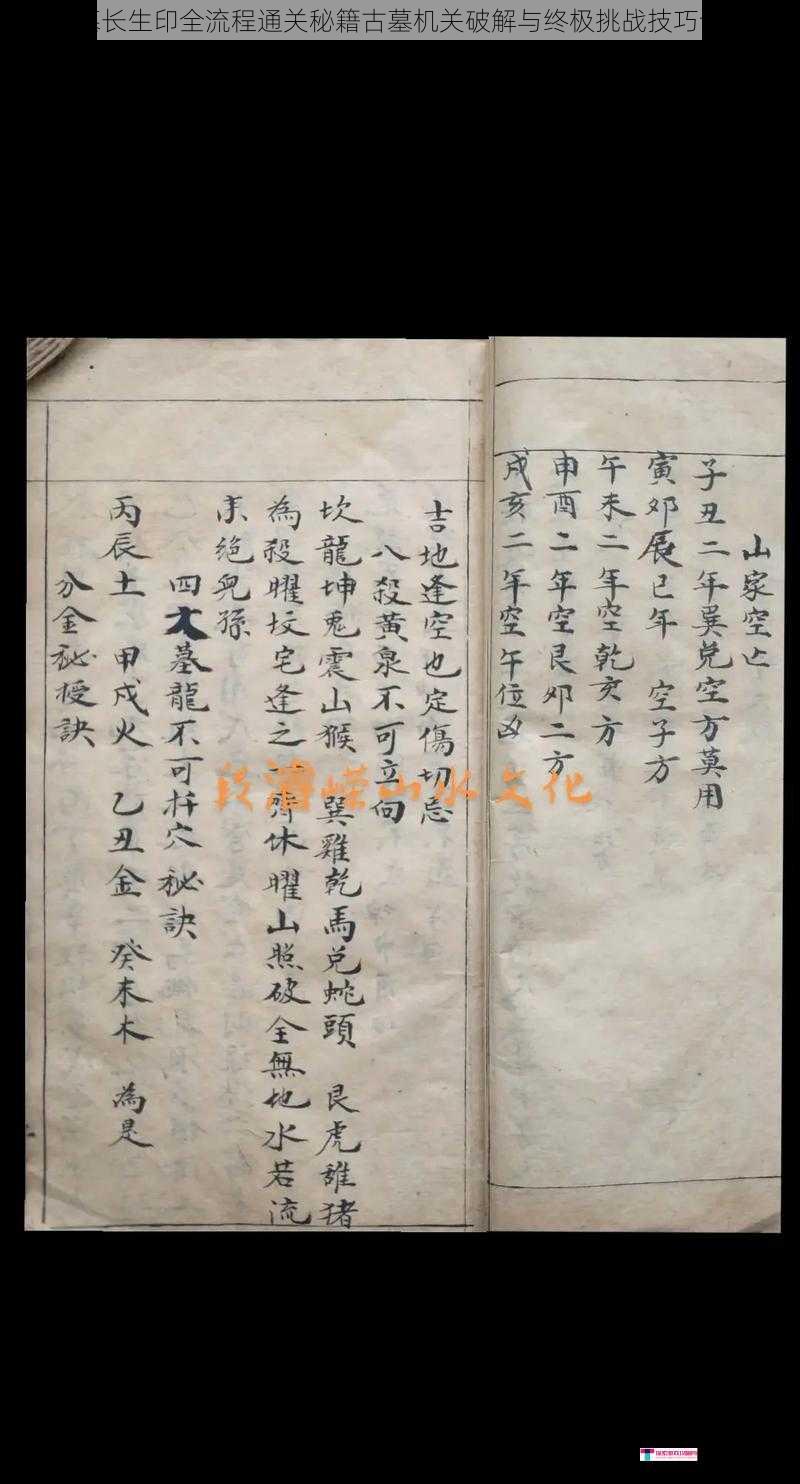 长生印全流程通关秘籍古墓机关破解与终极挑战技巧
山家空亡
子丑二年巽兑空方莫用
寅卯辰巳年 空子方
午未二年空乾亥方
申酉二年空艮卯二方
戌亥二年空午位凶
吉地逢空也定傷切忌
八殺黃泉不可立向
坎龍坤兎震山猴 巽雞乾馬兑蛇頭 艮虎離猪
為殺曜坟宅逢之一齊休曜山照破全無地水若流
来絶兒孫
四大墓龍不可扦穴秘訣
丙辰土 甲戌火 乙丑金 癸未木 為是
分金秘授訣
山水文化